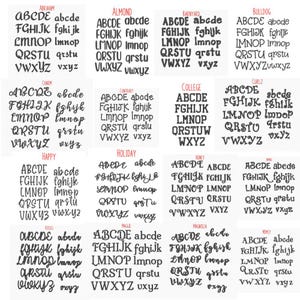 ABRAHAM
ABCDE abcde
FGHIJK fghijk
LMNOP lmnop
QRSTU qrstu
VWXYZ vwxyz
ALMOND
ABCDE abcde
FGHIJK fghijk
LMNOP lmnop
QRSTU qrstu
VWXYZ vwxyz
ABCDE abcde
FGHIJK fghijk
LMNOP lmnop
QRSTU qrstu
VWXYZ vwxyz
BULLDOG
ABCDE abcde
FGHIJK fghijk
LMNOP lmnop
QRSTU qrstu
VWXYZ vwxyz
CANDY
ABCDE abcde
FGHIJK fghijk
LMNOP lmnop
QRSTU qrstu
VWXYZ vwxyz
ABCDE abcde
FGHIJK fghijk
LMNOP lmnop
QRSTU qrstu
VWXYZ vwxyz
COLLEGE
ABCDE abcde
FGHIJK fghijk
LMNOP lmnop
QRSTUV qrstu
WXYZ vwxyz
CURLS
ABCDE abcde
FGHIJK fghijk
LMNOP lmnop
QRSTU qrstu
VWXYZ vwxyz
HAPPY
ABCDE abcde
FGHIJK fghijk
LMNOP lmnop
QRSTU qrstu
VWXYZ vwxyz
HOLIDAY
ABCDE abcde
FGHIJK fghijk
LMNOP lmnop
QRSTU qrstu
VWXYZ vwxyz
HONEY
ABCDE abcde
FGHIJK fghijk
LMNOP lmnop
QRSTU qrstu
VWXYZ vwxyz
ABCDE abcde
FGHIJK fghijk
LMNOP lmnop
QRSTU qrstu
VWXYZ vwxyz
ABCDE abcde
FGHIJK fghijk
LMNOP lmnop
QRSTU qrstu
VWXYZ vwxyz
ABCDE abcde
FGHIJK fghijk
LMNOP lmnop
QRSTU qrstu
VWXYZ vwxyz
ABCDE abcde
FGHIJK fghijk
LMNOP lmnop
QRSTU qrstu
VWXYZ vwxyz
MONEY
ABCDE abcde
FGHIJK fghijk
LMNOP lmnop
QRSTU qrstu
VWXYZ vwxyz